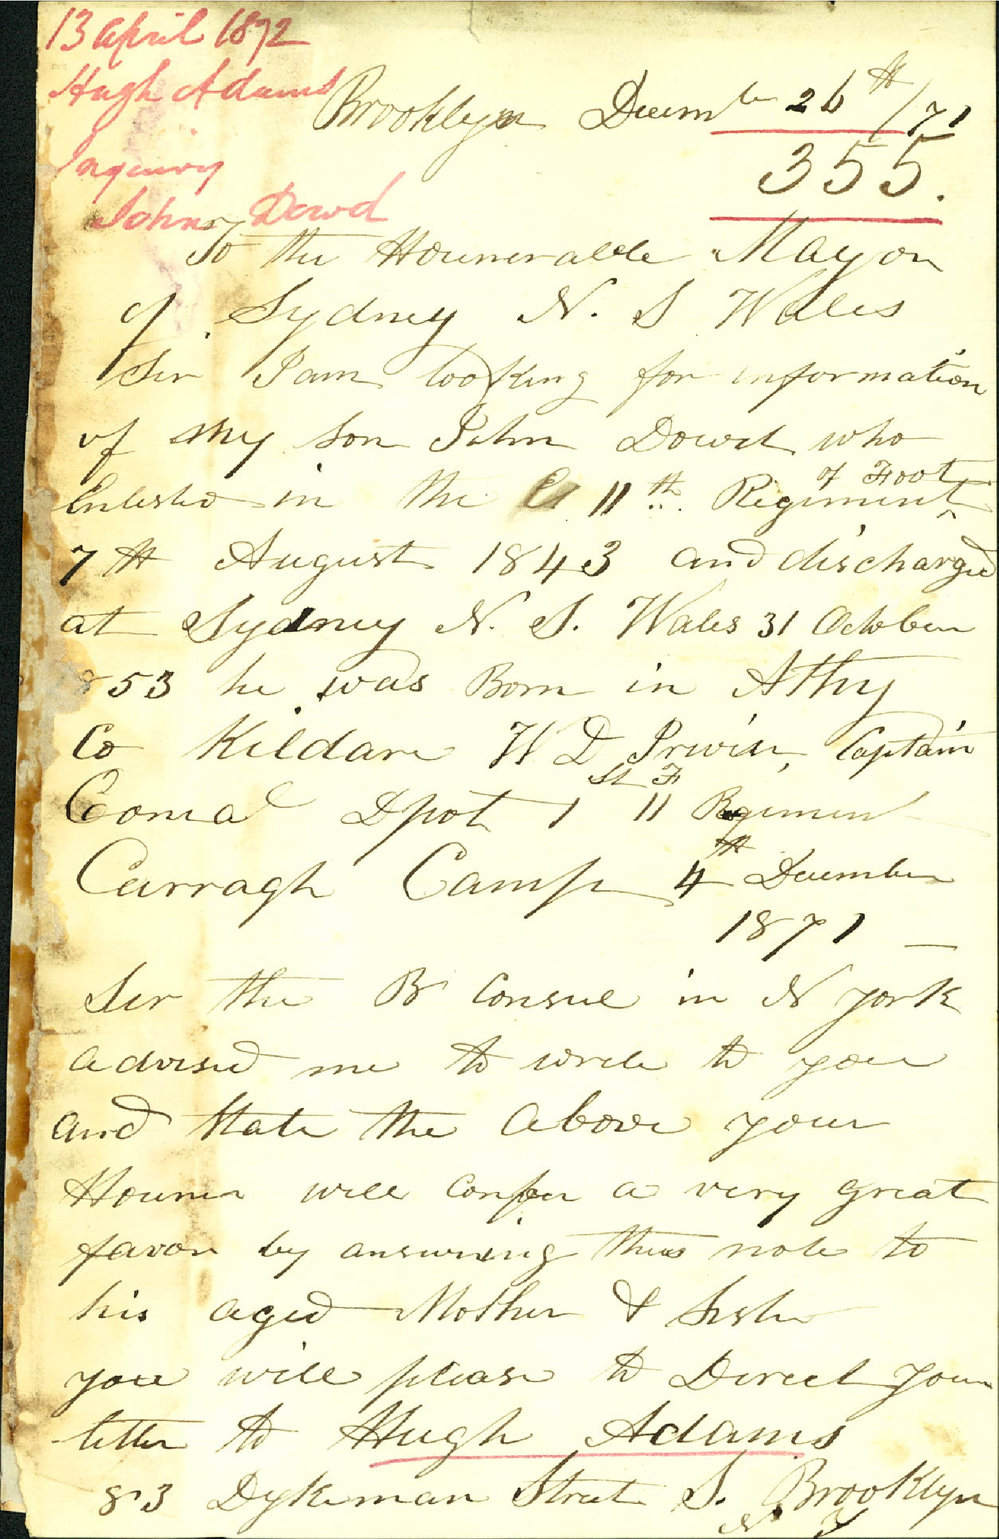 13 April 1872
Hugh Adams
Inquiry
John Dowd
Brooklyn Decembr 26th/71
355.
To the Hounerable Mayor
of Sydney N. S Wales
Sir I am looking for information
of My son John Dowd who
Enlested in the 11th Regiment of Foot
7th August 1843 and discharged
at Sydney N. S. Wales 31 October
853 he was Born in Athy
Co Kildare W D Irwin, Captain
Comd Dpot 1st F 11 Regiment
Curragh Camp 4th December
1871 —
Sir the B Consul in N York
advised me to write to you
and state the above your
Houner will confer a very great
favor by answering this note to
his aged Mother & Sister
you will please to Direct your
letter to Hugh Adams
83 Dykeman Street S. Brooklyn
N. Y